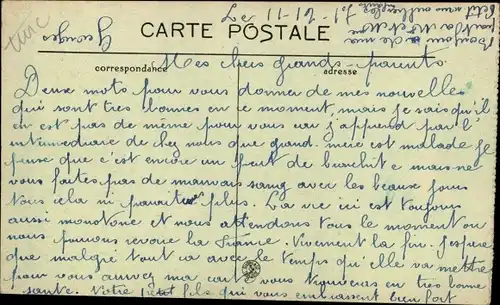 turc
Georges
Le 11-11-19
CARTE POSTALE
Mes chers grands-parents
correspondance
adresse
Deux mots pour vous donner de mes nouvelles
qui sont très bonnes en ce moment, mais je sais qu'il
en est pas de même pour vous car j'apprend par l'
intermediaire de chez nous que grand-mère est malade je
pense que c'est encore un peut de bronchite mais ne
vous faites pas de mauvais sang avec les beaux jours
tous cela ni paraitra plus. La vie ici est toujours
aussi monotone et nous attendons tous le moment ou
nous pouvons revoir la France. Vivement la fin. J'espere
que malgré tout ca avec le temps qu'elle va mettre
pour vous arrivez ma carte vous trouveras en très bonne
santé. Votre petit fils qui vous embrassent bien fort